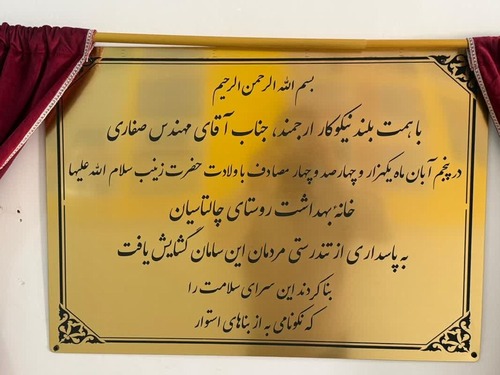 بسم الله الرحمن الرحیم
با همت بلند نیکوکار ارجمند، جناب آقای مهندس صفاری
در پنجم آبان ماه یکهزار و چهارصد و چهار مصادف با ولادت حضرت زینب سلام الله علیها
خانهٔ بهداشت روستای چالتاسیان
به پاسداری از تندرستی مردمان این سامان گشایش یافت
بنا کردند این سرای سلامت را
که نکونامی به از بناهای استوار